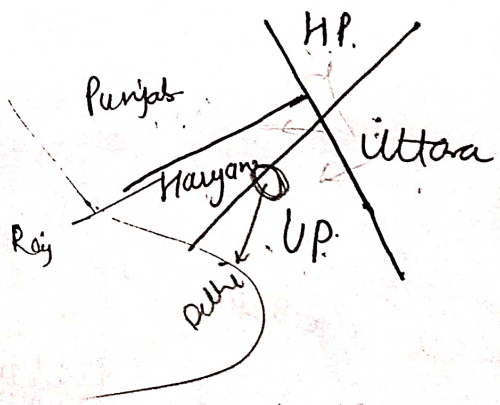 H.P.
Punjab
Uttara
Haryana
Raj
U.P.
Delhi